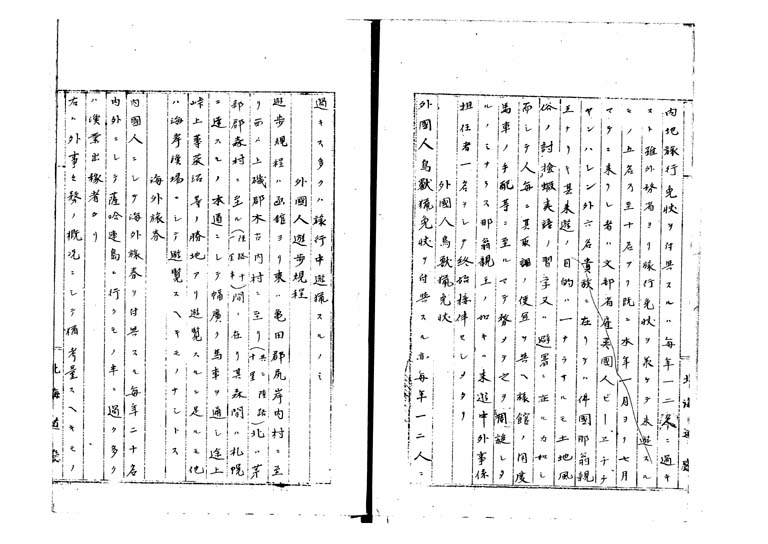 内地旅行免状ヲ付与スルハ毎年一二名ニ過キ
スト雖外務省ヨリ旅行免状ヲ受ケテ来遊スル
モノ五名乃至十名アリ既ニ本年一月ヨリ七月
マテニ来リシ者ハ文部省雇英国人ビー、エチ、チ
ヤンバレン外六名貴族ニ在リテハ佛國那翁親
王ナリ其来遊ノ目的ハ一ナラサルモ土地風
俗ノ討撿蝦夷語ノ習字又ハ避暑ニ在ルカ如シ
而シテ人毎ニ其取調ノ便宜ヲ与ヘ旅館ノ用度
馬車ノ手配等ニ至ルマテ務メテ之ヲ周旋シタ
ルノミナラス那翁親王ノ如キハ来遊中外事係
担任者一名ヲシテ終始接伴セシメタリ
外國人鳥獣猟免状
外國人鳥獣猟免状ヲ付与スルハ毎年一二人ニ
北海道廳
過キス多クハ旅行中遊猟スルノミ
外國人遊歩規程
遊歩規程ハ函館ヨリ東ハ亀田郡尻岸内村ニ至
リ西ハ上磯郡木古内村ニ至リ(共ニ陸路十里)北ハ茅
部郡森村ニ至ル(陸路十一里半)間ニ在リ其森間ハ札幌
ニ達スルノ本道ニシテ幅廣ク馬車ヲ通シ途上
峠上蓴菜沼等ノ勝地アリ遊覧スルニ足ルモ他
ハ海岸漁場ニシテ遊覧スヘキモノナシトス
海外旅券
内國人ニシテ海外旅券ヲ付与スル毎年二十名
内外ニシテ薩哈連島ニ行クモノ半ニ過ク多ク
ハ漁業出稼者ナリ
右ハ外事課務ノ概況ニシテ備考量スヘキモノ
北海道廳